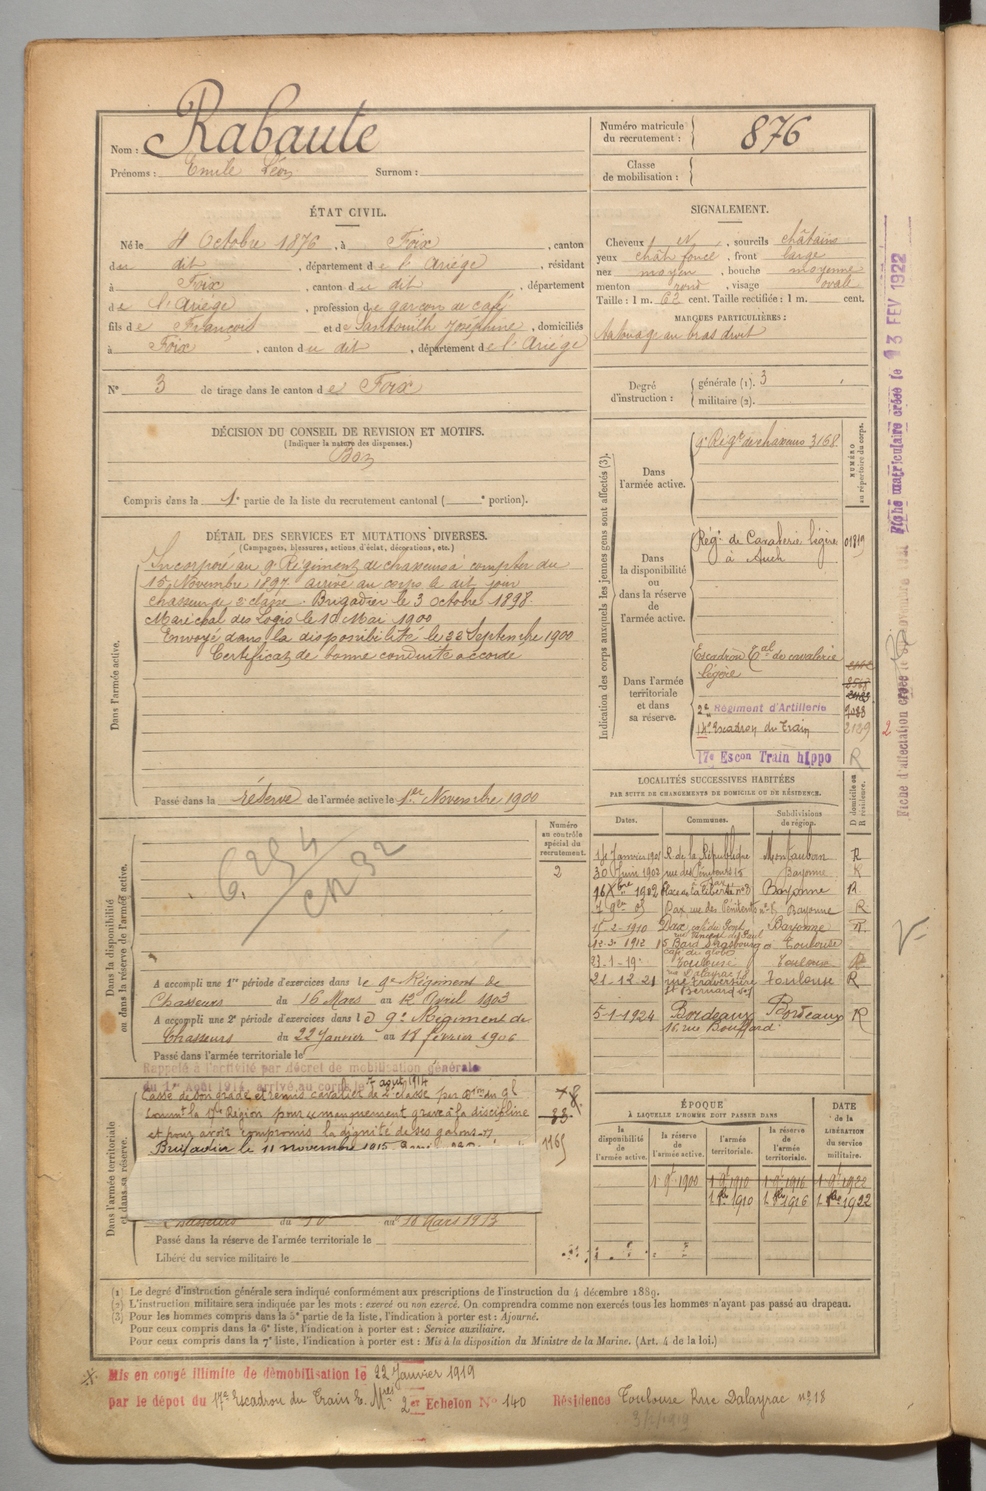 Nom : Rabaute
Prénoms : Emile Léon Surnom :
Numéro matricule du recrutement : 876
Classe de mobilisation :
ÉTAT CIVIL.
Né le 4 Octobre 1876, à Foix, canton
du dit, département de l'Ariège, résidant
à Foix, canton du dit, département
de l'Ariège, profession de garçon de café
fils de François et de Joséphine, domiciliés
à Foix, canton du dit, département de l'Ariège
N° 3 de tirage dans le canton de Foix
SIGNALEMENT.
Cheveux et, sourcils châtains
yeux chât foncé, front large
nez moyen, bouche moyenne
menton rond, visage ovale
Taille : 1 m. 62 cent. Taille rectifiée : 1 m. cent.
MARQUES PARTICULIÈRES :
tatouage au bras droit
Degré d'instruction : générale (1). 3
militaire (2).
DÉCISION DU CONSEIL DE REVISION ET MOTIFS.
(Indiquer la nature des dispenses.)
Bon
Compris dans la 1e partie de la liste du recrutement cantonal ( e portion).
DÉTAIL DES SERVICES ET MUTATIONS DIVERSES.
(Campagnes, blessures, actions d'éclat, décorations, etc.)
Dans l'armée active.
Incorporé au 9e Régiment de chasseurs à compter du
15 Novembre 1897 arrivé au corps le dit jour
chasseur de 2e classe. Brigadier le 3 Octobre 1898
Maréchal des Logis le 10 Mai 1900
Envoyé dans la disponibilité le 22 Septembre 1900
Certificat de bonne conduite accordé
Passé dans la réserve de l'armée active le 1er Novembre 1900
Indication des corps auxquels les jeunes gens sont affectés (3).
NUMÉRO au répertoire du corps.
Dans l'armée active.
9e Régt de chasseurs 3168
Dans la disponibilité ou dans la réserve de l'armée active.
Régt de Cavalerie légère 01819
à Auch
Dans l'armée territoriale et dans sa réserve.
Escadron Tal de cavalerie
légère
2e Régiment d'Artillerie 9088
Escadron du Train 2189
17e Escon Train hippo R
Fiche matriculaire créée le 13 FEV 1922
Fiche d'affectation créée le
LOCALITÉS SUCCESSIVES HABITÉES
PAR SUITE DE CHANGEMENTS DE DOMICILE OU DE RÉSIDENCE.
D domicile ou R résidence.
Dates. Communes. Subdivisions de région.
Janvier 1901 R. de la République Montauban R
30 Juin 1902 rue des 15 Bayonne R
16 Xbre 1902 Place de la Liberté n°3 Bayonne R
7 9bre 03 Dax rue des Pénitents n°8 Bayonne R
15-2-1910 Dax café du Bayonne R
12-2-1912 15 Bard Strasbourg Toulouse
23-1-19 Toulouse Toulouse R
21-12-21 rue Traversière St Bernard Toulouse R
5-1-1924 Bordeaux Bordeaux R
16 rue Bouffard
Dans la disponibilité ou dans la réserve de l'armée active.
Numéro au contrôle spécial du recrutement.
2
6254
CR 32
A accompli une 1re période d'exercices dans le 9e Régiment de
Chasseurs du 16 Mars au 12 Avril 1903
A accompli une 2e période d'exercices dans le 9e Régiment de
Chasseurs du 22 Janvier au 18 février 1906
Passé dans l'armée territoriale le
Rappelé à l'activité par décret de mobilisation générale
du 1er Août 1914, arrivé au corps le août 1914
Dans l'armée territoriale et dans sa réserve.
Cassé de son grade et remis cavalier de 2e classe par du gl
commt la Région pour manquement grave à la discipline
et pour avoir compromis la dignité de ses galons
Brigadier le 11 novembre 1915
1165
Chasseurs du 10 au 18 Mars 1913
Passé dans la réserve de l'armée territoriale le
Libéré du service militaire le
ÉPOQUE
À LAQUELLE L'HOMME DOIT PASSER DANS
DATE de la LIBÉRATION du service militaire.
la disponibilité de l'armée active. la réserve de l'armée active. l'armée territoriale. la réserve de l'armée territoriale.
1 9t 1900 1 9t 1910 1 9t 1916 1 9t 1922
1 1910 1 1916 1 1922
(1) Le degré d'instruction générale sera indiqué conformément aux prescriptions de l'instruction du 4 décembre 1889.
(2) L'instruction militaire sera indiquée par les mots : exercé ou non exercé. On comprendra comme non exercés tous les hommes n'ayant pas passé au drapeau.
(3) Pour les hommes compris dans la 5e partie de la liste, l'indication à porter est : Ajourné.
Pour ceux compris dans la 6e liste, l'indication à porter est : Service auxiliaire.
Pour ceux compris dans la 7e liste, l'indication à porter est : Mis à la disposition du Ministre de la Marine. (Art. 4 de la loi.)
Mis en congé illimité de démobilisation le 22 Janvier 1919
par le dépôt du 17e Escadron du Train 2er Echelon N° 140 Résidence Toulouse Rue Dalayrac n°18